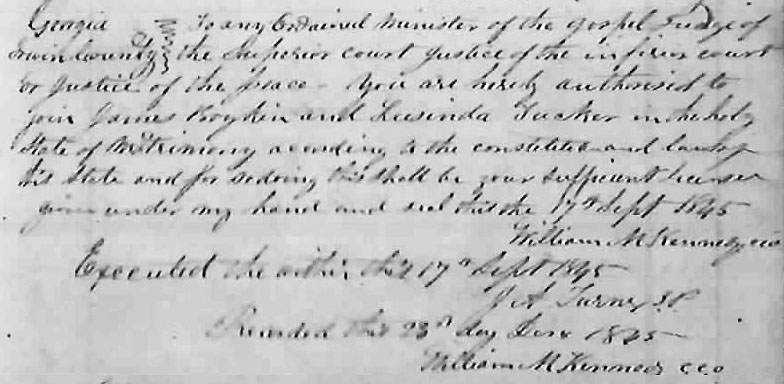 Georgia To any Ordained Minister of the gospel Judge of
Irwin County the Superior court Justice of the inferior court
or Justice of the peace - You are hereby authorised to
join James Boykin and Lusinda Tucker in the holy
State of Matrimony according to the constitution and laws of
this State and for so doing this shall be your sufficient license
given under my hand and seal this the 17th Sept 1845
William M Kennedy cco
Executed the within this 17th Sept 1845
J A Turner J.P.
Recorded this 23d day 1845
William M Kennedy cco